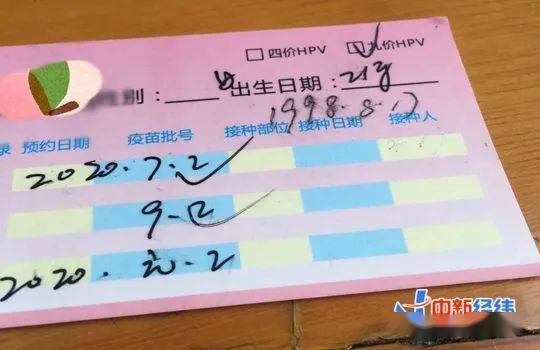 □四价HPV ☑九价HPV
性别: 女 出生日期: 21岁
1998.8.17
录 预约日期 疫苗批号 接种部位 接种日期 接种人
2020.7.2
2020. .2
中新经纬